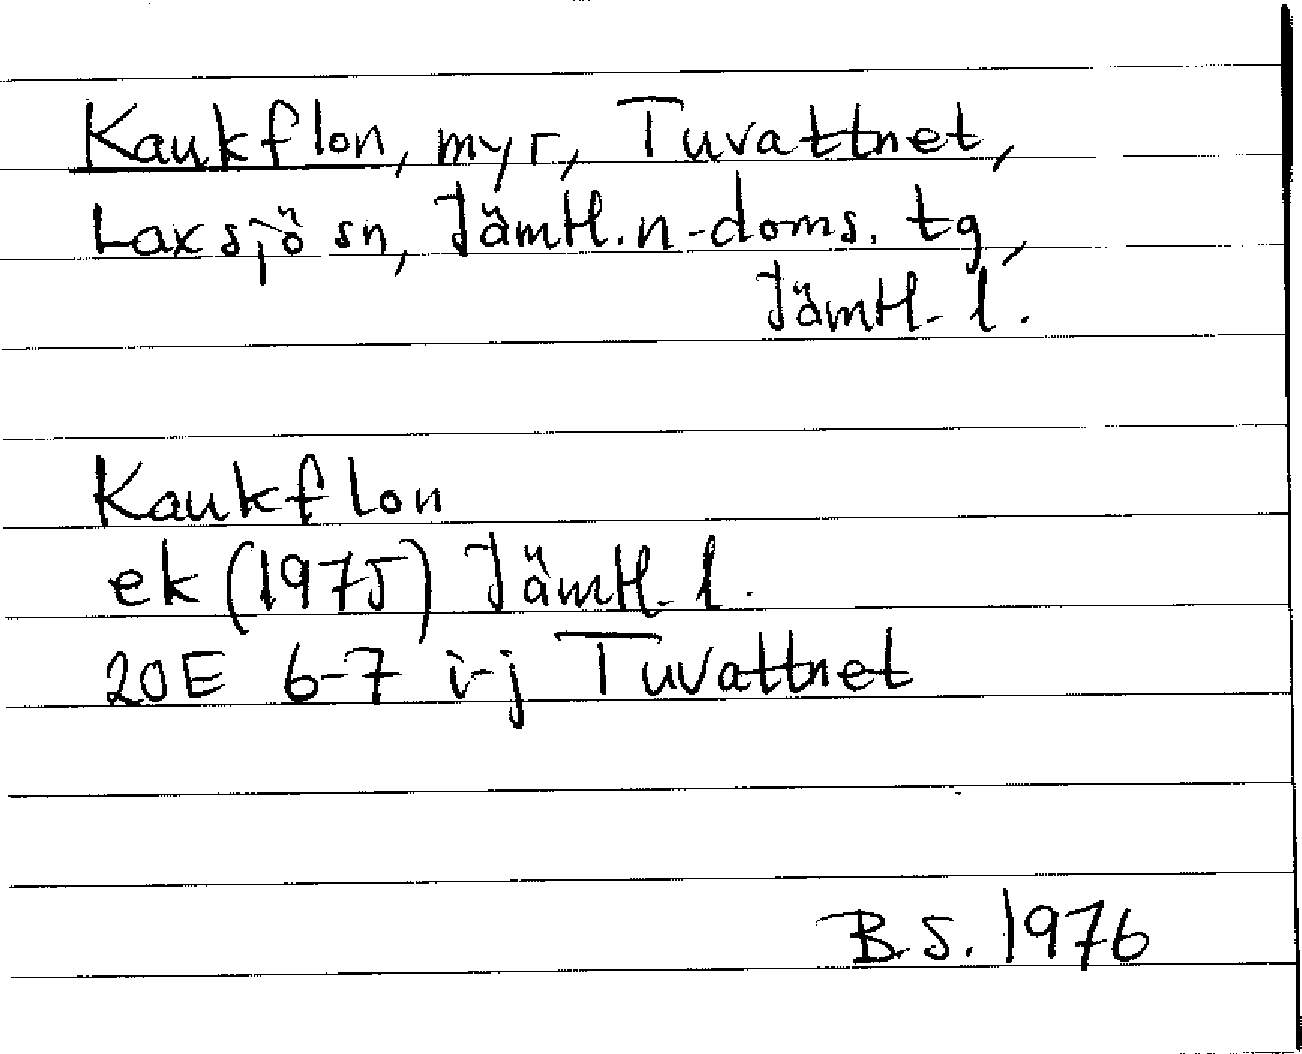 Kaukflon, myr, Tuvattnet,
Laxsjö sn, Jämtl. n-doms. tg,
Jämtl. l.
Kaukflon
ek (1975) Jämtl. l.
20E 6-7 i-j Tuvattnet
B.S. 1976